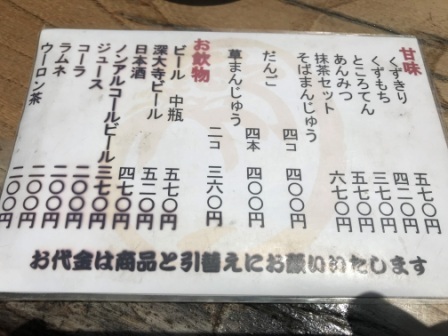 甘味
くずきり 五七〇円
くずもち 四二〇円
ところてん 三七〇円
あんみつ 五二〇円
抹茶セット 六七〇円
そばまんじゅう 四コ 四〇〇円
だんご 四本 四〇〇円
草まんじゅう 二コ 三六〇円
お飲物
ビール 中瓶 五七〇円
深大寺ビール 五二〇円
日本酒 四七〇円
ノンアルコールビール 三七〇円
ジュース 二〇〇円
コーラ 二〇〇円
ラムネ 二〇〇円
ウーロン茶 二〇〇円
お代金は商品と引替えにお願いいたします